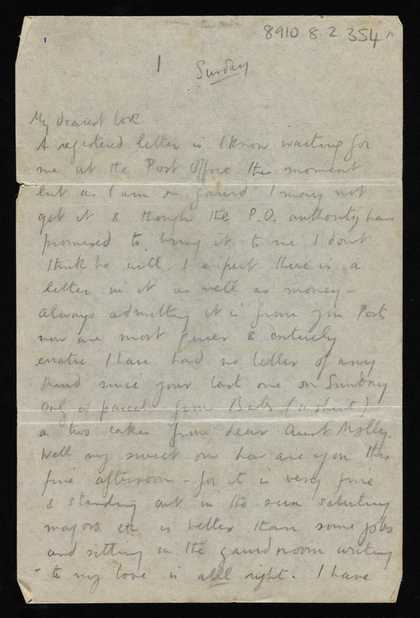 8910 8.2 354
1
Sunday
My dearest love
A registered letter is I know waiting for
me at the Post Office this moment
but as I am on guard I may not
get it & though the P.O. authority has
promised to bring it to me I don't
think he will. I expect there is a
letter in it as well as money -
always admitting it is from you. Posts
now are most queer & entirely
erratic I have had no letter of any
kind since your last one on Sunday
only a parcel from Babs (
a two cakes from dear Aunt Molly.
Well my sweet one how are you this
fine afternoon - for it is very fine
& standing out in the sun saluting
majors etc is better than some jobs
and sitting in the guardroom writing
to my love is alll right. I have